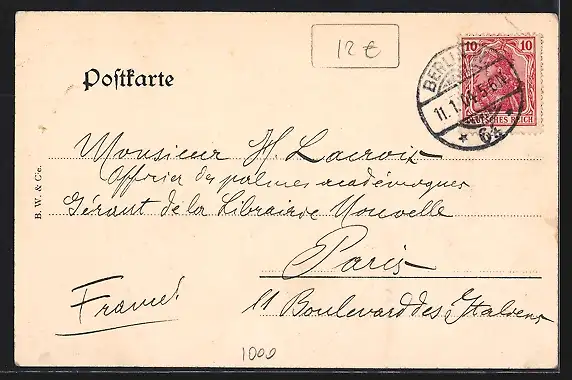 12 €
Postkarte
10 10
DEUTSCHES REICH
BERLIN
11.1.04.5-6N.
* 64 *
Monsieur H. Lacroix
Officier des palmes académiques
Gérant de la Librairie Nouvelle
Paris
France.
11 Boulevard des Italiens
B. W. & Cie.
1000